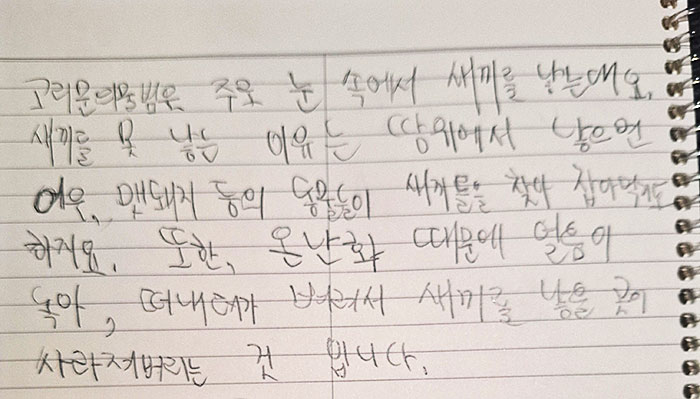 고리무늬물범은 주로 눈 속에서 새끼를 낳는대요.
새끼를 못 낳는 이유는 땅위에서 낳으면
여우, 멧돼지 등의 동물들이 새끼들을 찾아 잡아먹기도
하지요. 또한, 온난화 때문에 얼음이
녹아, 떠내려가 버려서 새끼를 낳을 곳이
사라져버리는 것 입니다.